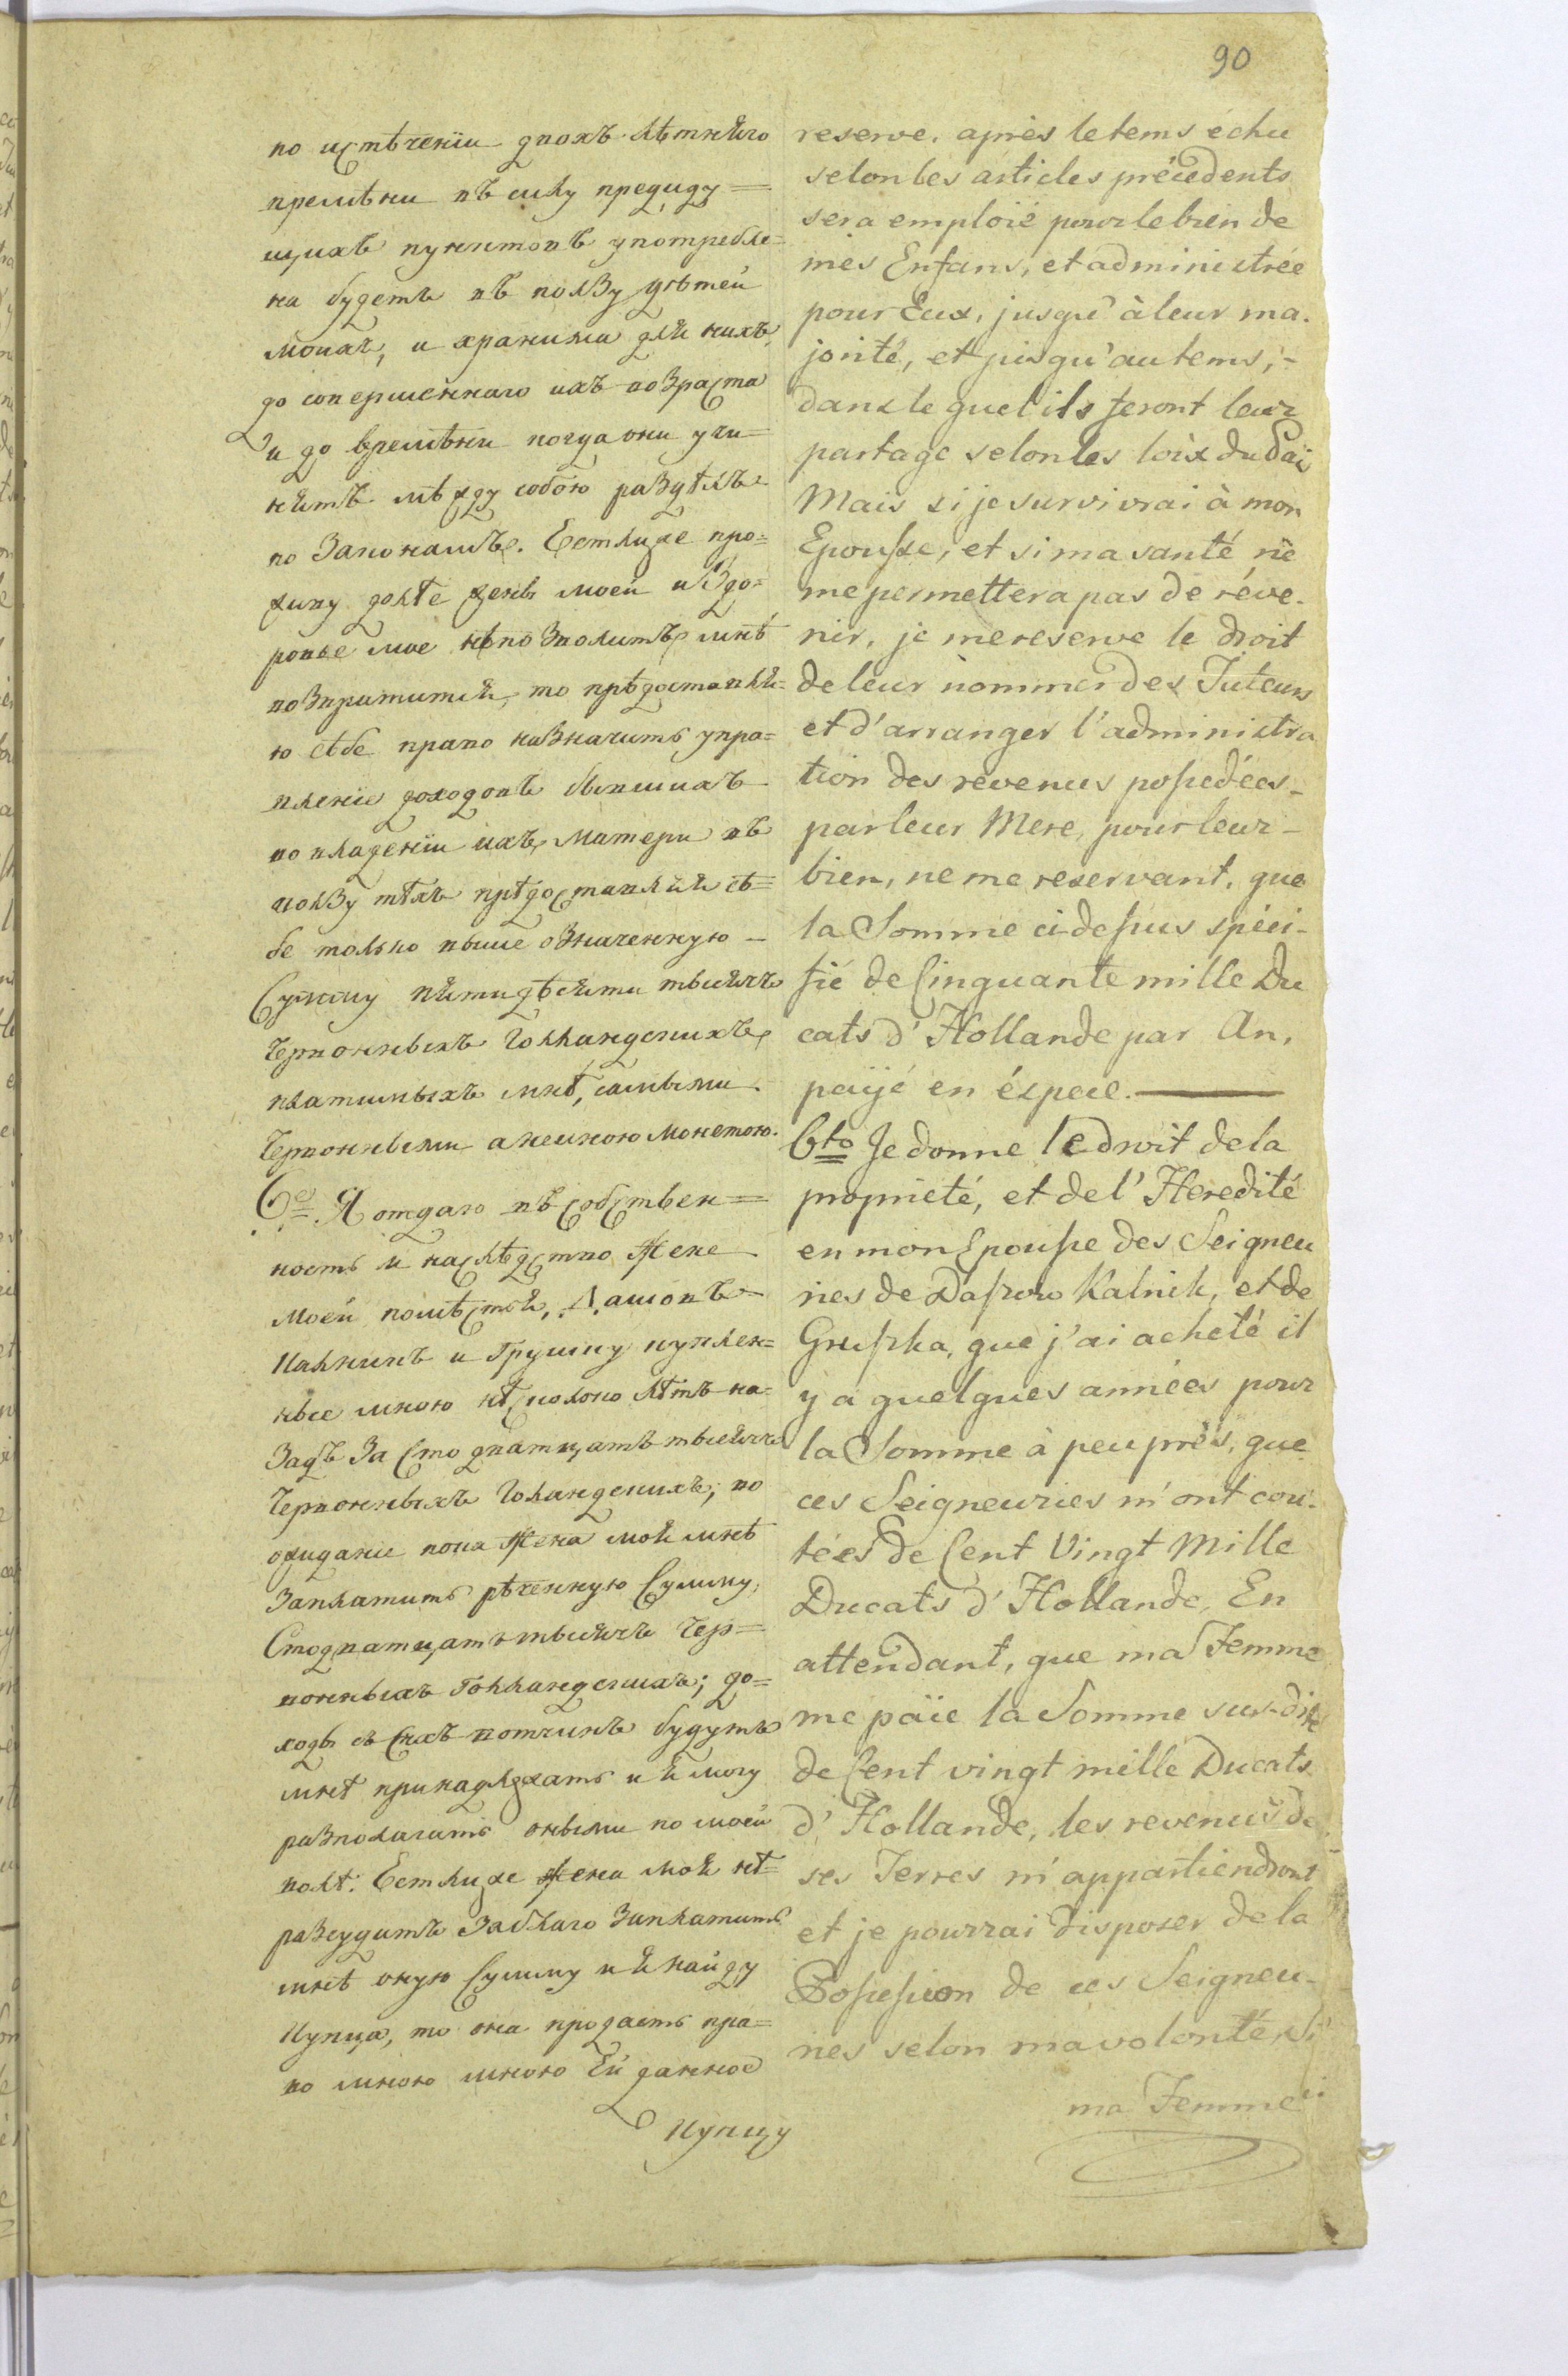 90
по истѣченiи двохъ лѣтняго
времѣни въ силу предиду=
щихъ пунктовъ употребле=
на будетъ въ ползу дѣтей
моихъ, и хранима для нихъ,
до совершеннаго ихъ возраста
и до времѣни когда они учи=
нятъ мѣжду собою раздѣлъ
по Законамъ. Естлиже про=
живу долѣе жены моей и Здо=
ровье мое не позволитъ мнѣ
возвратится, то прѣдоставля=
ю себѣ право назначить упра=
вленiе доходовъ бывшихъ
во владенiи ихъ матери въ
ползу тѣхъ прѣдоставляя сѣ=
бе только выше означенную
Сумму пятидѣсяти тысячъ
Червонныхъ Голландскихъ,
платимыхъ мнѣ, самыми
Червонными а не иною монетою.
6е Я отдаю въ собствен=
ность и наслѣдство Жене
моей помѣстья, Дашовъ
Калникъ и Грушку куплен=
ные мною нѣсколко лѣтъ на=
Задъ За Сто дватцать тысячъ
Червонныхъ Голандскихъ; во
ожиданiе пока Жена моя мнѣ
Заплатитъ рѣченную Сумму,
Стодватцать тысячъ Чер=
вонныхъ Голландскихъ; до=
ходы съ сихъ вотчинъ будутъ
мнѣ принадлѣжать и я могу
разполагать оными по моей
волѣ. Естлиже Жена моя нѣ=
разсудитъ Заблаго Заплатить
мнѣ оную Сумму и я найду
Купца, то она продастъ пра=
во мною мною Ей данное
Купцу
reserve. après le tems échu
selon les articles précedents
sera emploié pour le bien de
mes Enfans, et administrée
pour Eux, jusqu'à leur ma.
jorité, et jusqu'au tems, -
dans le quel ils feront leur
partage selon les loix du Païs
Mais si je survivrai à mon
Epousse, et si ma santé ne
me permettera pas de réve-
nir, je me reserve le droit
de leur nommer des Tuteurs
et d'arranger l'administra
tion des revenus possedées -
par leur Mere, pour leur -
bien, ne me reservant, que
la Somme ci dessus spéci-
fié de Cinquante mille Du
cats d'Hollande par An,
païjé en éspece.
6to Je donne le droit de la
proprieté, et de l'Heredité
en mon Epousse des Seigneu
ries de Daszow Kalnik, et de
Gruszka, que j'ai acheté il
y a quelques années pour
la Somme à peu près, que
ces Seigneuries m'ont cou-
tées de Cent Vingt Mille
Ducats d'Hollande, En
attendant, que ma Femme
me païe la Somme sus-dite
de Cent vingt mille Ducats
d'Hollande, les revenus de
ses Terres m'appartiendront
et je pourrai disposer de la
Possession de ces Seigneu-
ries selon ma volonté, Si
ma Femme